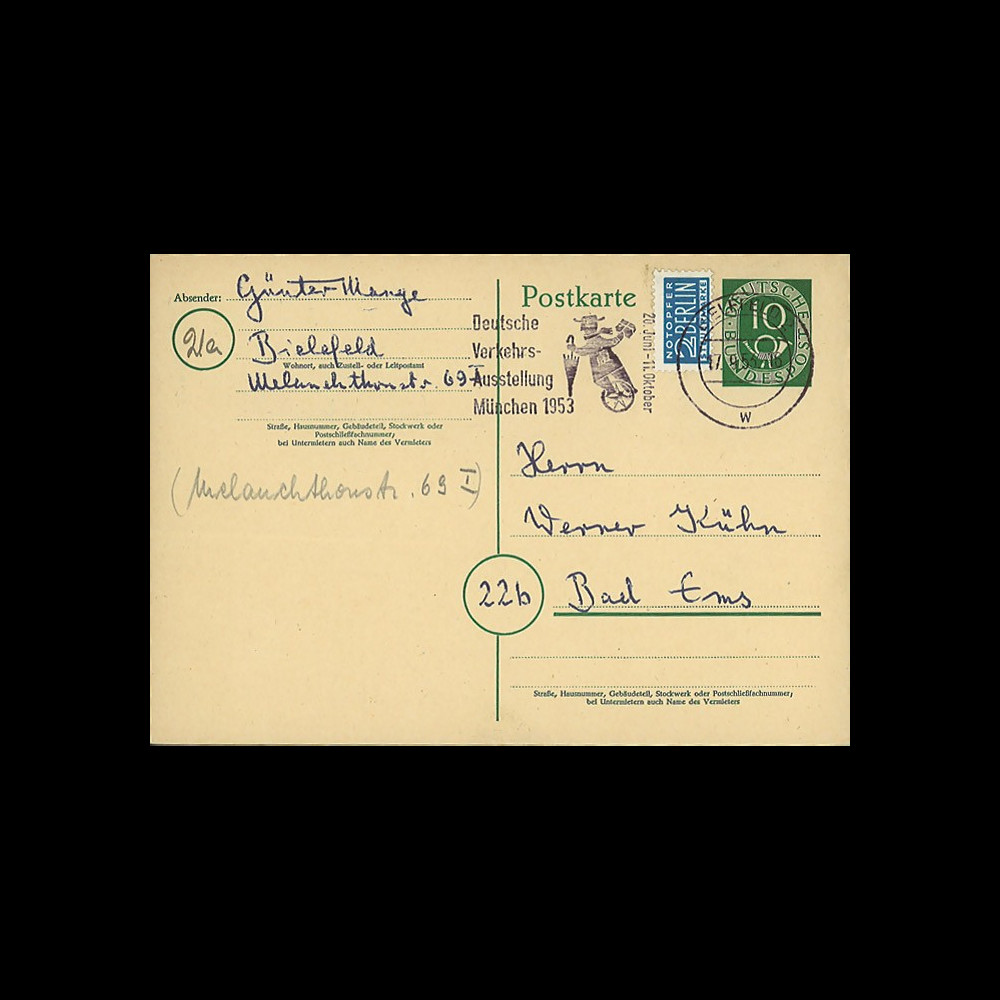 Absender: Günter Mange
21a
Bielefeld
Wohnort, auch Zustell- oder Leitpostamt
Melanchthonstr. 69 I
Straße, Hausnummer, Gebäudeteil, Stockwerk oder
Postschließfachnummer;
bei Untermietern auch Name des Vermieters
(Melanchthonstr. 69 I)
Postkarte
Deutsche
Verkehrs-
Ausstellung
München 1953
20. Juni - 11. Oktober
NOTOPFER
2 BERLIN
STEUERMARKE
DEUTSCHE
BUNDESPOST
10
w
Herrn
Werner Kühn
22b
Bad Ems
Straße, Hausnummer, Gebäudeteil, Stockwerk oder Postschließfachnummer;
bei Untermietern auch Name des Vermieters